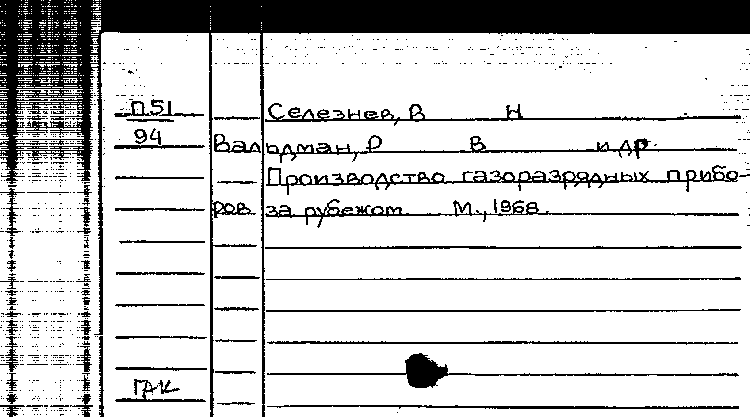 П51
94
Селезнев, В Н
Вальдман, Р В и др.
Производство газоразрядных прибо-
ров за рубежом. М., 1968.
ГАК